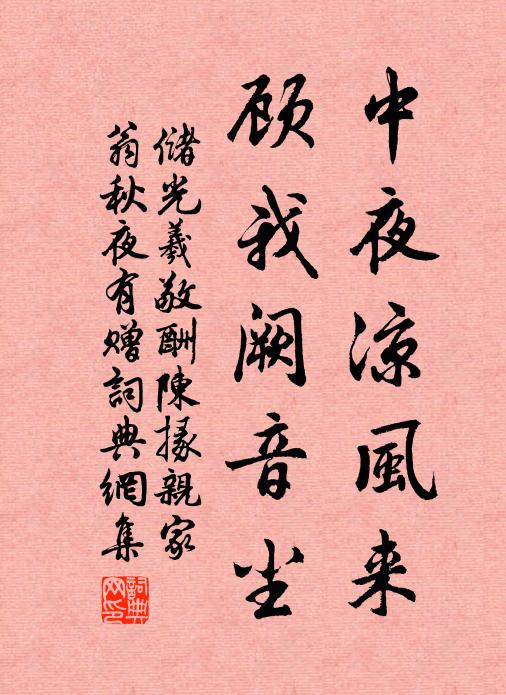 中夜凉風来
顾我阙音尘
儲光羲敬酬陳掾親家
翁秋夜有赠詞典網集
詞典网印